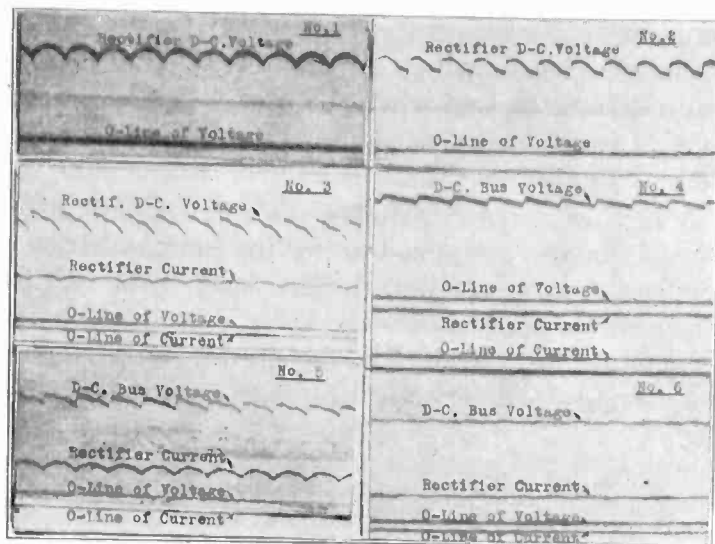 No.1
Rectifier D-C.Voltage
O-Line of Voltage
No.2
Rectifier D-C.Voltage
O-Line of Voltage
No. 3
Rectif. D-C. Voltage
Rectifier Current
O-Line of Voltage
O-Line of Current
No. 4
D-C. Bus Voltage
O-Line of Voltage
Rectifier Current
O-Line of Current
No. 5
D-C. Bus Voltage
Rectifier Current
O-Line of Voltage
O-Line of Current
No. 6
D-C. Bus Voltage
Rectifier Current
O-Line of Voltage
O-Line of Current